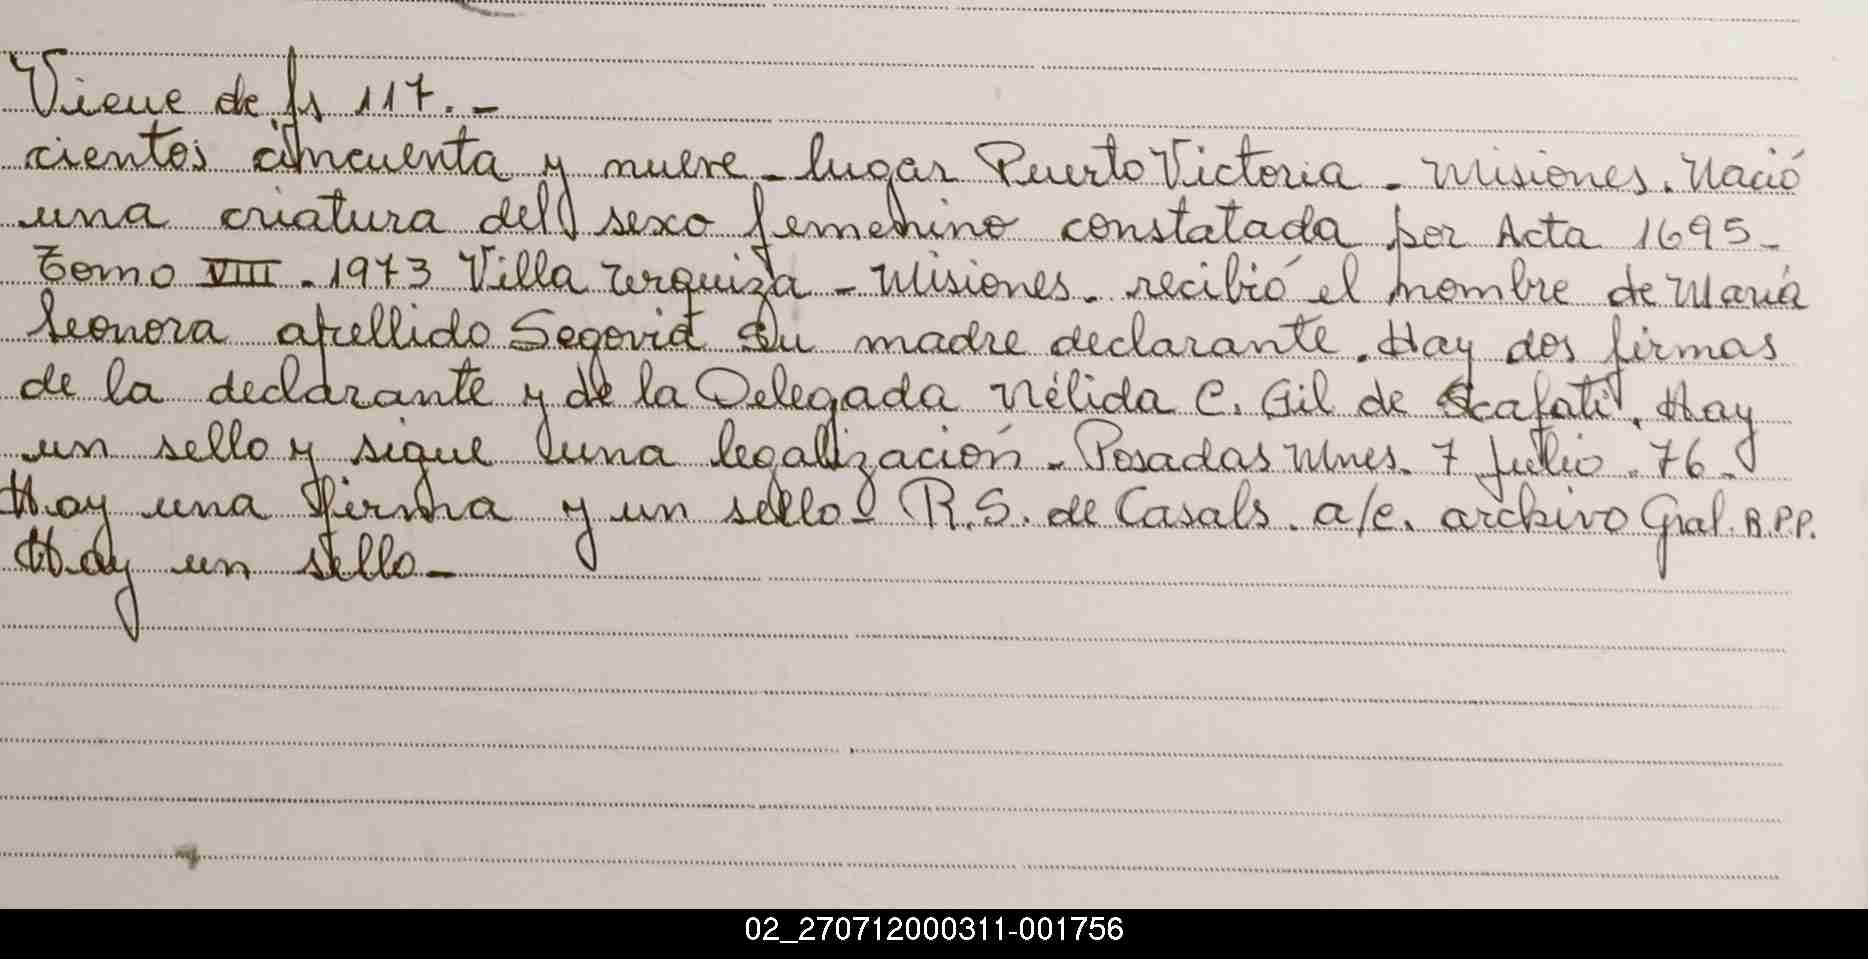 Viene de fs 117.-
cientos cincuenta y nueve - lugar Puerto Victoria - Misiones. Nació
una criatura del sexo femenino constatada por Acta 1695-
Tomo VIII - 1973 Villa Urquiza - Misiones - recibió el nombre de María
Leonora apellido Segovia Su madre declarante. Hay dos firmas
de la declarante y de la Delegada Nélida C. Gil de Scafati. Hay
un sello y sigue una legalización - Posadas Mnes. 7 julio - 76 -
Hay una firma y un sello - R.S. de Casals. a/c. archivo Gral. R.P.P.
Hay un sello -
02_270712000311-001756